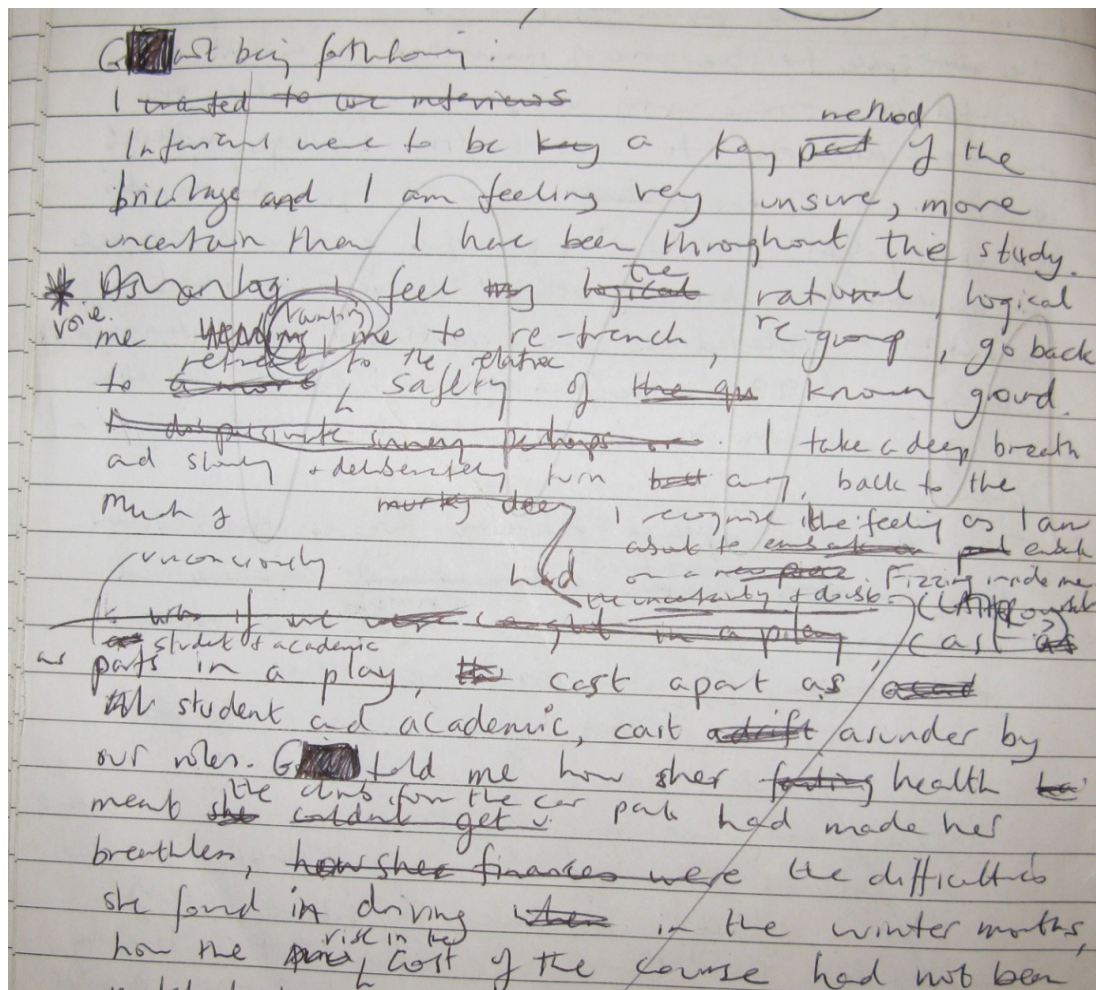 G not being forthcoming:
I wanted to use interviews
method
Interviews were to be key a key part of the
bricolage and I am feeling very unsure, more
uncertain than I have been throughout this study.
the
I feel my logical rational logical
voice
taunting
me me to re-trench, re group, go back
retreat to the relative
to a more safety of the qu known good.
A dispassionate survey perhaps or. I take a deep breath
and slowly + deliberately turn back away, back to the
much of murky deep I recognise the feeling as I am
about to embark on embark
unconsciously had on a new piece. Fizzing inside me
the uncertainty + doubt
it was if we were caught in a play, cast as
as student & academic
as parts in a play, cast apart as acad
student and academic, cast adrift asunder by
our roles. G told me how sher failing health
the climb from the car
meant she couldn't get park had made her
breathless, how sher finances were the difficulties
she found in driving when in the winter months,
rise in the
how the price, cost of the course had not been